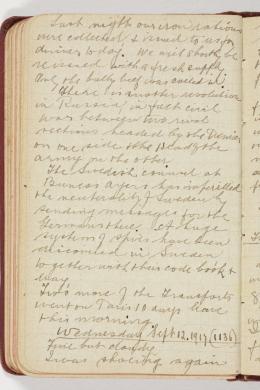 Last night our iron rations
were collected & issued to us for
dinner to-day. We will shortly be
reissued with a fresh supply
the old bully beef was called in
There is another revolution
in Russia, in fact civil
war between two rival
sections headed by the Premier
on one side & the Head of the
army on the other
The Swedish consul at
Buenos Ayres has imperilled
the neutrality of Sweden by
sending messages for the
Germans thro. A huge
system of spies have been
discovered in Sweden
together with their code book &
key
Two more of the Transports
went on Paris 10 days leave
this morning
Wednesday Sept 12, 1917 (1136)
Fine but cloudy
I was shoeing again